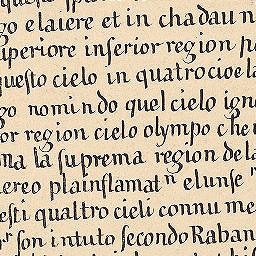 go elaiere et in chadaun
uperiore inferior region
questo cielo in quatro cioe la
go nomindo quel cielo igne
or region cielo olympo che
ma la suprema region dela
ereo plainflamat^n el unse
esti qualtro cieli connume
son intuto secondo Raban